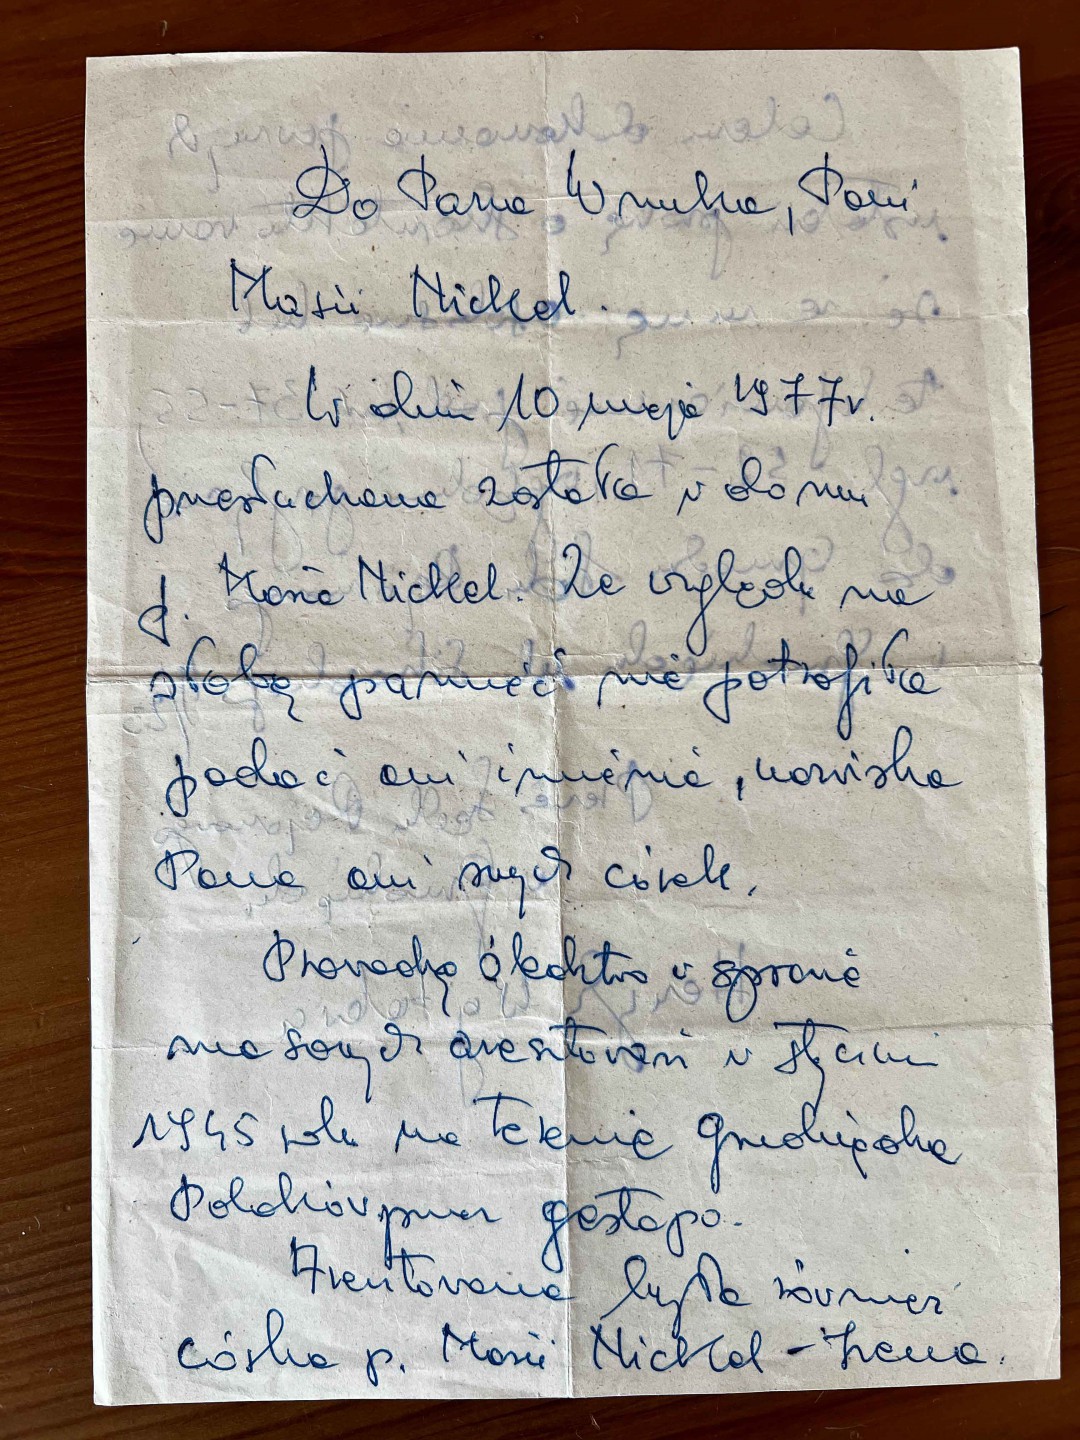 Do Pana Wnuka, Pani
Marii Nickel.
W dniu 10 maja 1977r.
przesłuchana została w domu
p. Maria Nickel. Ze względu na
słabą pamięć nie potrafiła
podać ani imienia, nazwiska
Pana ani swych córek.
Prowadzę śledztwo w sprawie
masowych aresztowań w styczniu
1945 roku na terenie Grudziądza
Polaków przez gestapo.
Aresztowana była również
córka p. Marii Nickel - Irena.